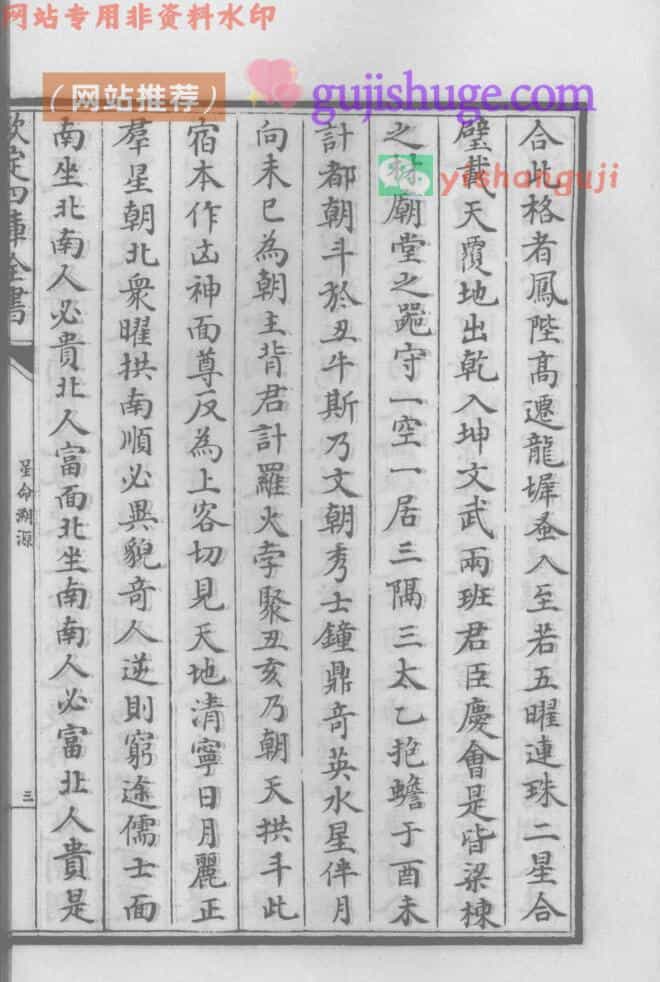 网站专用非资料水印
（网站推荐）
gujishuge.com
yishanguji
合此格者鳳陛髙遷龍墀蚤入至若五曜連珠二星合
璧戴天覆地出乾入坤文武兩班君臣慶會是皆梁棟
之 廟堂之器守一空一居三隅三太乙抱蟾于酉未
計都朝斗於丑牛斯乃文朝秀士鐘鼎竒英水星伴月
向未巳為朝主背君計羅火孛聚丑亥乃朝天拱斗此
宿本作凶神面尊反為上客切見天地清寧日月麗正
羣星朝北衆曜拱南順必異貌竒人逆則窮途儒士面
南坐北南人必貴北人富面北坐南南人必富北人貴是
欽定四庫全書
星命溯源
三